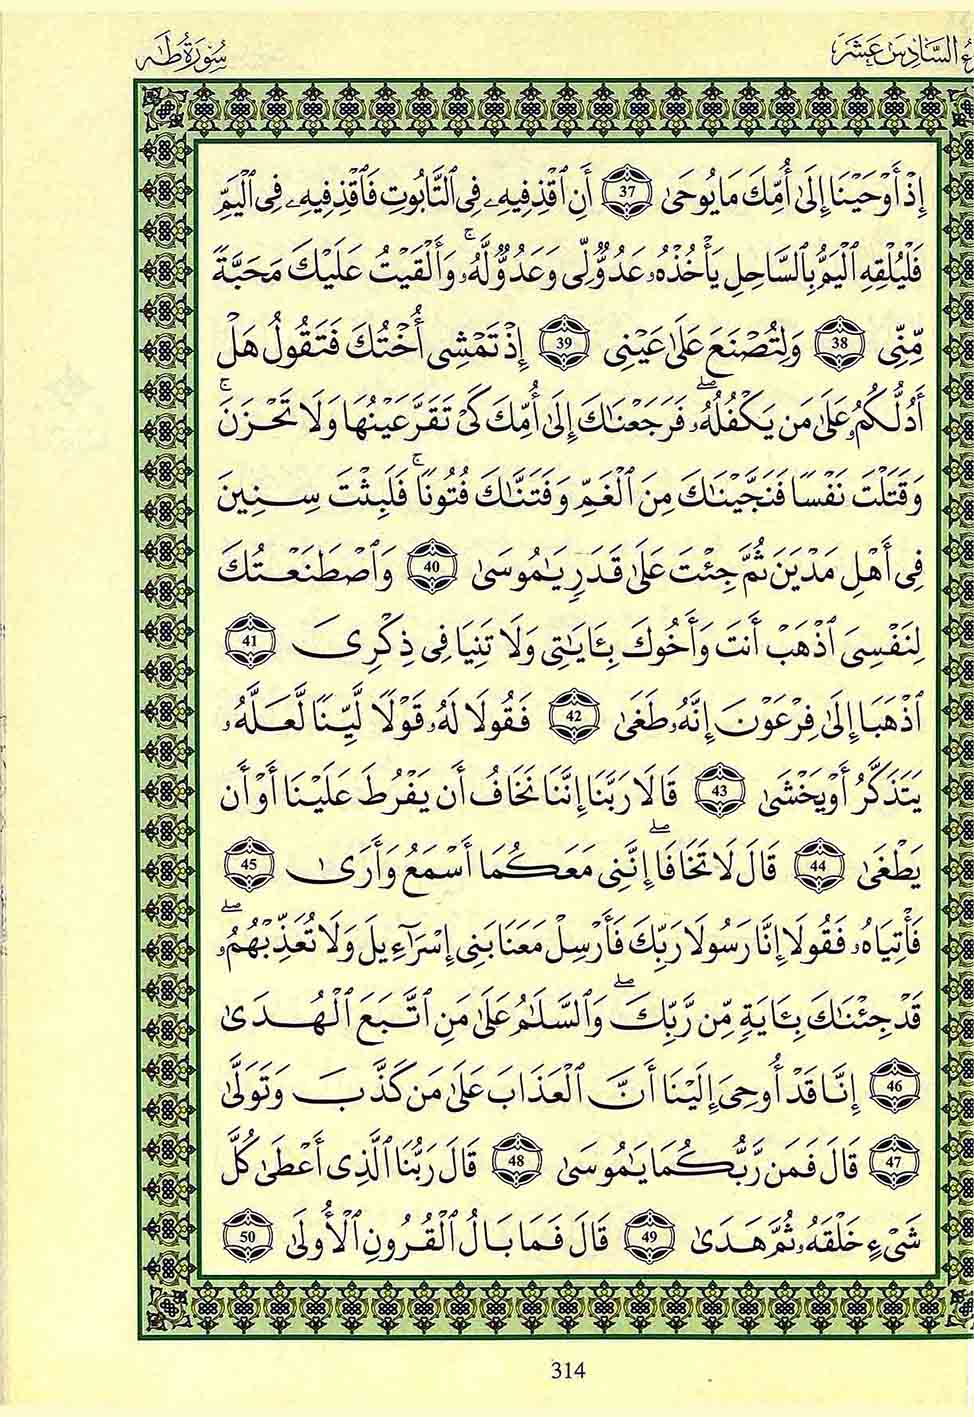 سُورَةُ طَهَ
ءُ السَّادِسَ عَشَرَ
إِذْ أَوْحَيْنَا إِلَىٰ أُمِّكَ مَا يُوحَىٰ 37 أَنِ ٱقْذِفِيهِ فِى ٱلتَّابُوتِ فَٱقْذِفِيهِ فِى ٱلْيَمِّ
فَلْيُلْقِهِ ٱلْيَمُّ بِٱلسَّاحِلِ يَأْخُذْهُ عَدُوٌّ لِّى وَعَدُوٌّ لَّهُۥ ۚ وَأَلْقَيْتُ عَلَيْكَ مَحَبَّةً
مِّنِّى 38 وَلِتُصْنَعَ عَلَىٰ عَيْنِى 39 إِذْ تَمْشِى أُخْتُكَ فَتَقُولُ هَلْ
أَدُلُّكُمُۥ عَلَىٰ مَن يَكْفُلُهُۥ ۖ فَرَجَعْنَٰكَ إِلَىٰ أُمِّكَ كَىْ تَقَرَّ عَيْنُهَا وَلَا تَحْزَنَ ۚ
وَقَتَلْتَ نَفْسًا فَنَجَّيْنَٰكَ مِنَ ٱلْغَمِّ وَفَتَنَّٰكَ فُتُونًا ۚ فَلَبِثْتَ سِنِينَ
فِى أَهْلِ مَدْيَنَ ثُمَّ جِئْتَ عَلَىٰ قَدَرٍ يَٰمُوسَىٰ 40 وَٱصْطَنَعْتُكَ
لِنَفْسِىَ ٱذْهَبْ أَنتَ وَأَخُوكَ بِـَٔايَٰتِى وَلَا تَنِيَا فِى ذِكْرِىَ 41
ٱذْهَبَا إِلَىٰ فِرْعَوْنَ إِنَّهُۥ طَغَىٰ 42 فَقُولَا لَهُۥ قَوْلًا لَّيِّنًا لَّعَلَّهُۥ
يَتَذَكَّرُ أَوْ يَخْشَىٰ 43 قَالَا رَبَّنَا إِنَّنَا نَخَافُ أَن يَفْرُطَ عَلَيْنَا أَوْ أَن
يَطْغَىٰ 44 قَالَ لَا تَخَافَا ۖ إِنَّنِى مَعَكُمَا أَسْمَعُ وَأَرَىٰ 45
فَأْتِيَاهُۥ فَقُولَا إِنَّا رَسُولَا رَبِّكَ فَأَرْسِلْ مَعَنَا بَنِى إِسْرَٰٓءِيلَ وَلَا تُعَذِّبْهُمُۥ ۖ
قَدْ جِئْنَٰكَ بِـَٔايَةٍ مِّن رَّبِّكَ ۖ وَٱلسَّلَٰمُ عَلَىٰ مَنِ ٱتَّبَعَ ٱلْهُدَىٰ
46 إِنَّا قَدْ أُوحِىَ إِلَيْنَا أَنَّ ٱلْعَذَابَ عَلَىٰ مَن كَذَّبَ وَتَوَلَّىٰ
47 قَالَ فَمَن رَّبُّكُمَا يَٰمُوسَىٰ 48 قَالَ رَبُّنَا ٱلَّذِى أَعْطَىٰ كُلَّ
شَىْءٍ خَلْقَهُۥ ثُمَّ هَدَىٰ 49 قَالَ فَمَا بَالُ ٱلْقُرُونِ ٱلْأُولَىٰ 50
314